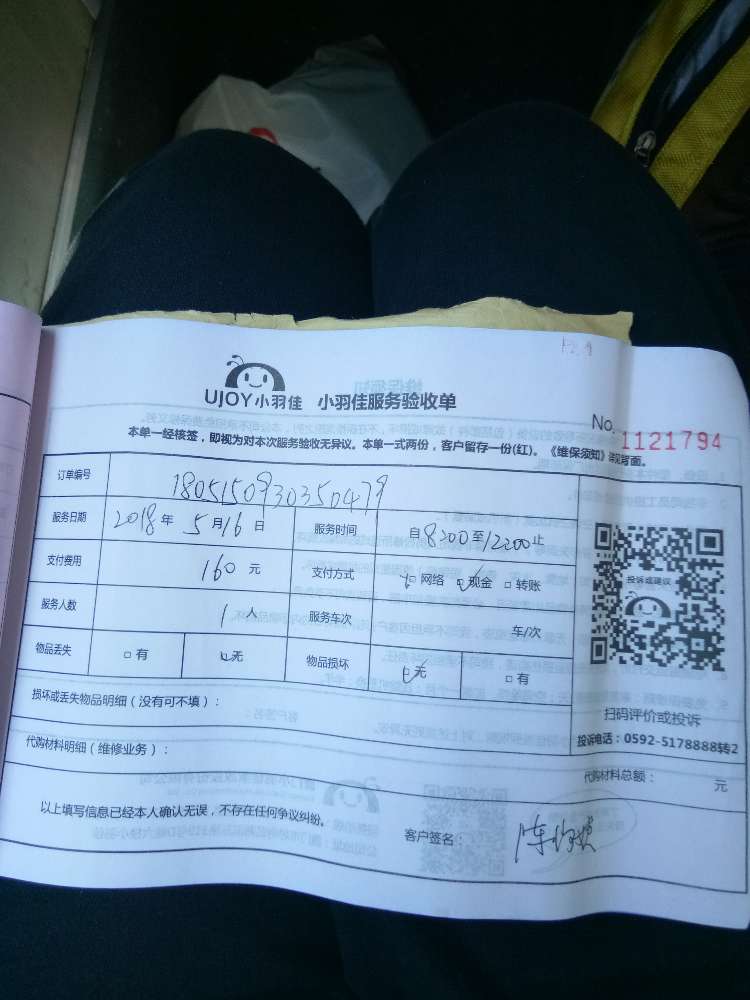 UJOY小羽佳 小羽佳服务验收单
No. 1121794
本单一经核签，即视为对本次服务验收无异议。本单一式两份，客户留存一份(红)。《维保须知》详见背面。
订单编号 1805150930350479
服务日期 2018年 5月16日 服务时间 自8:00至12:00止
支付费用 160元 支付方式 □网络 □现金 □转账
服务人数 1人 服务车次 车/次
物品丢失 □有 □无 物品损坏 □无 □有
投诉或建议
扫码评价或投诉
投诉电话：0592-5178888转2
损坏或丢失物品明细（没有可不填）：
代购材料明细（维修业务）： 代购材料总额： 元
以上填写信息已经本人确认无误，不存在任何争议纠纷。 客户签名： 陈